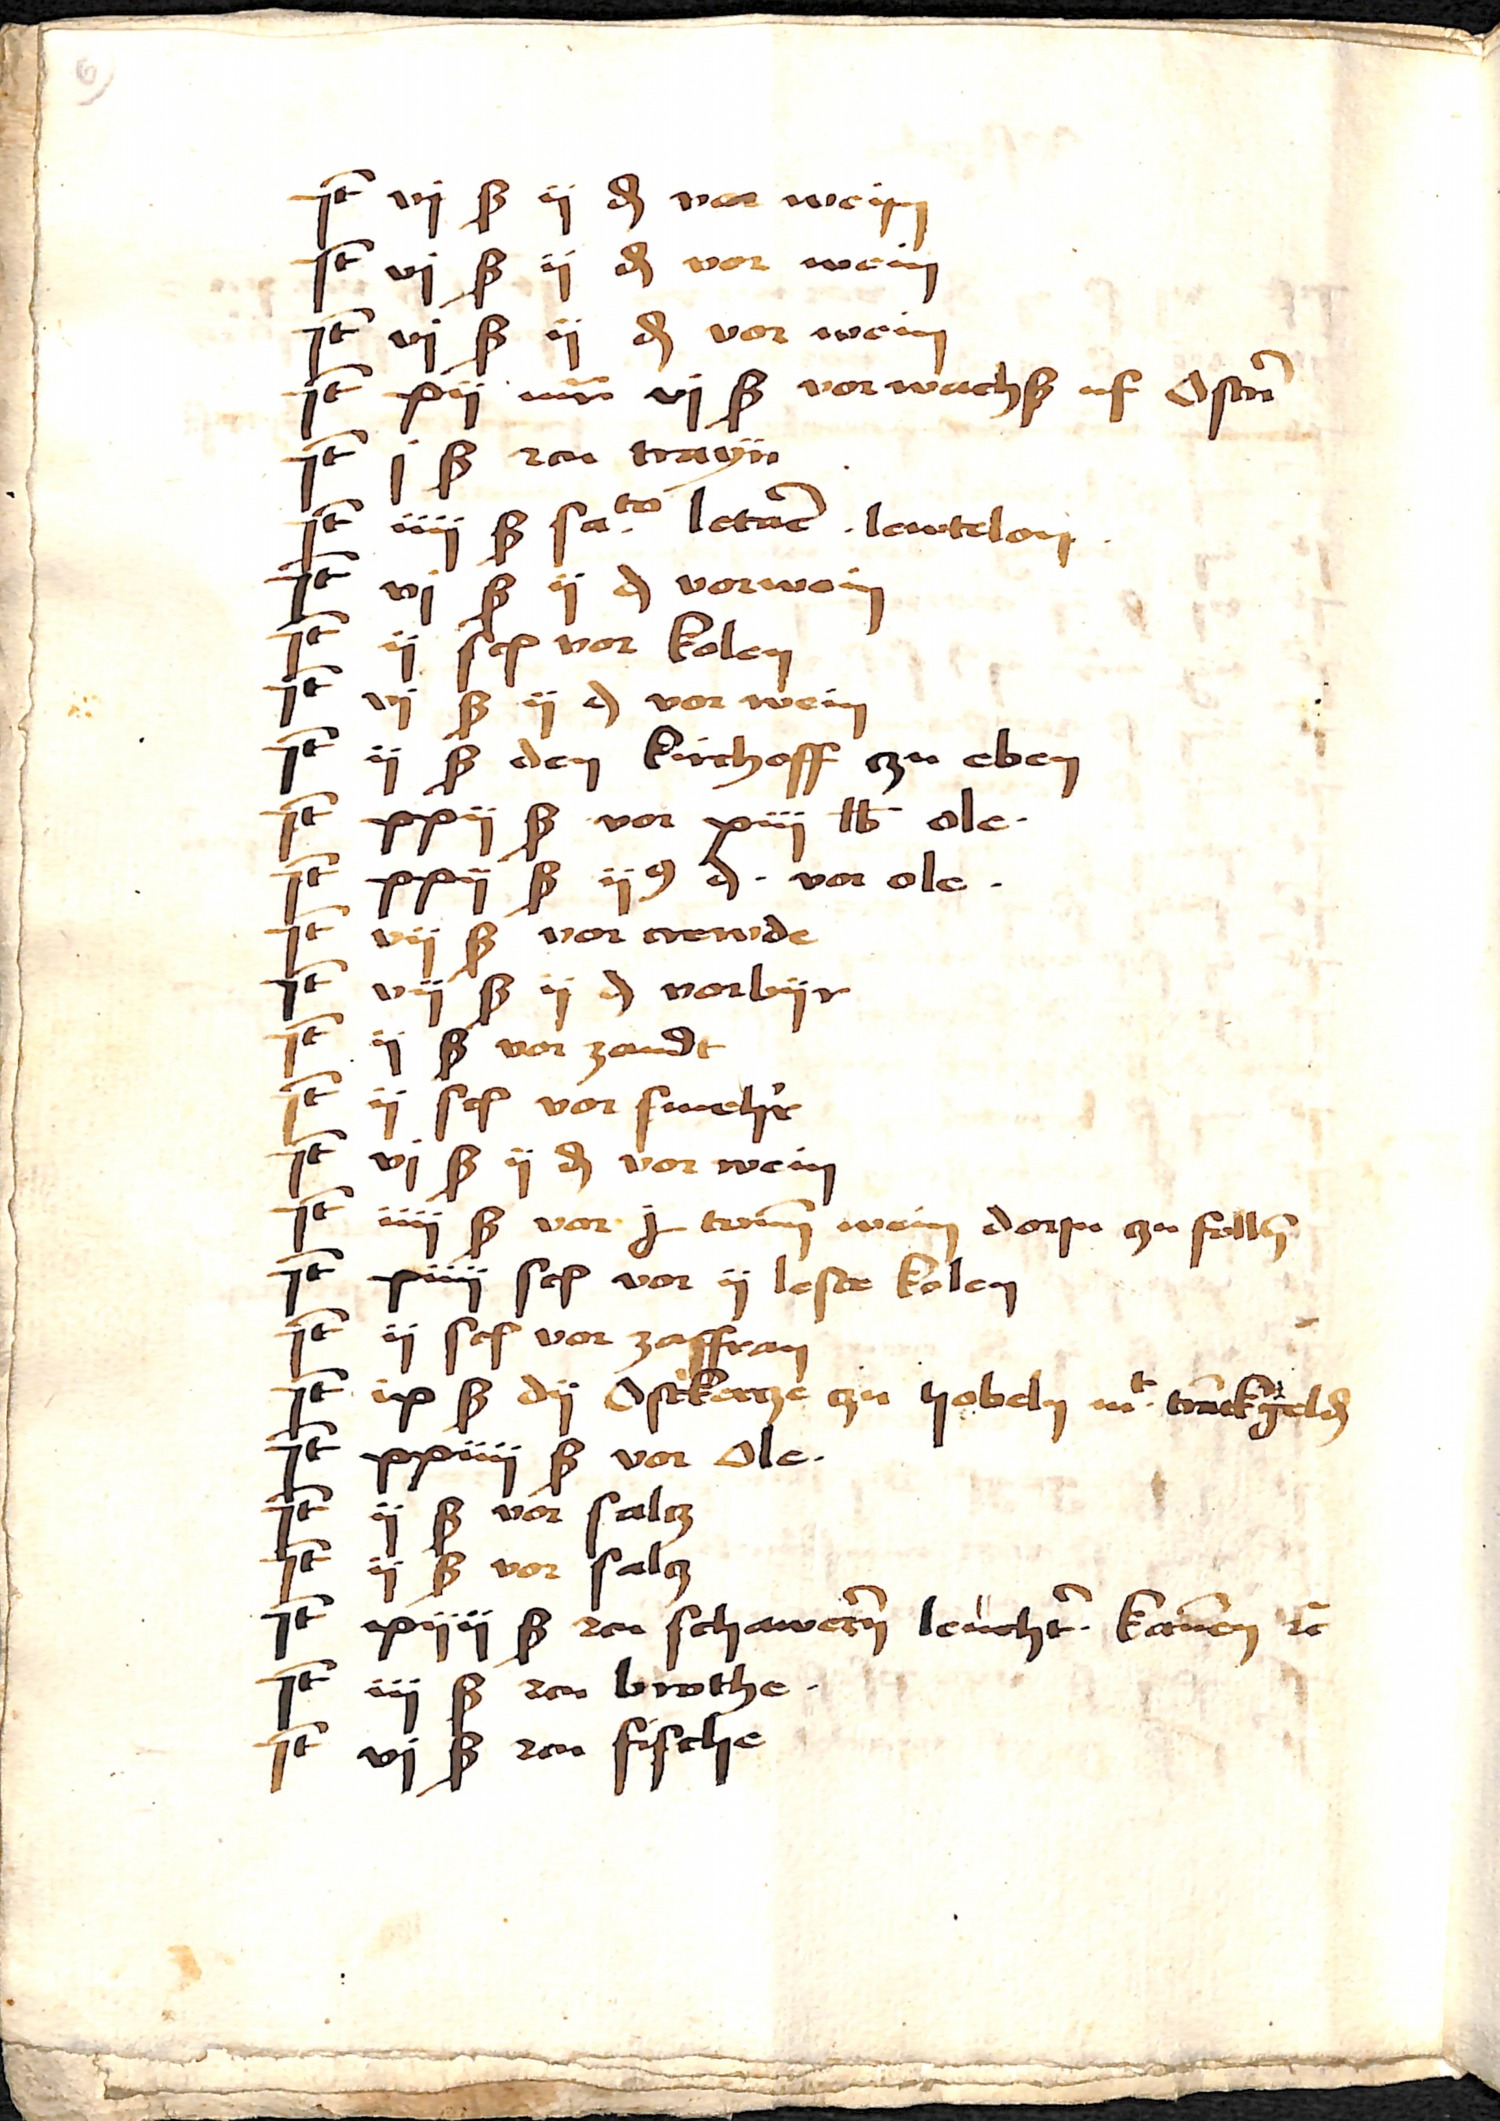 6
It vj ß ij d vor wein
It vj ß ij d vor wein
It vj ß ij d vor wein
It xij mr vj ß vor wachß uf Ostrn
It j ß zcu trayn
It iiij ß sato letare . lewtelon .
It vj ß ij d vor wein
It ij sch vor kolen
It vj ß ij d vor wein
It ij ß den kirchoff czu eben
It xxij ß vor xiij lb ole .
It xxij ß ij d . vor ole .
It vij ß vor crewde
It vij ß ij d vor bijr
It ij ß vor zandt
It ij sch vor
It vj ß ij d vor wein
It iiij ß vor j wein czu folln
It xiiij sch vor ij leste kolen
It ij sch vor zaffran
It ix ß dij Ostkercze czu hobeln mt tranckgeld
It xxiiij ß vor Ole .
It ij ß vor salcz
It ij ß vor salcz
It xiiij ß zcu schawern leucht . kannen rc
It iij ß zcu brothe .
It vj ß zcu fische